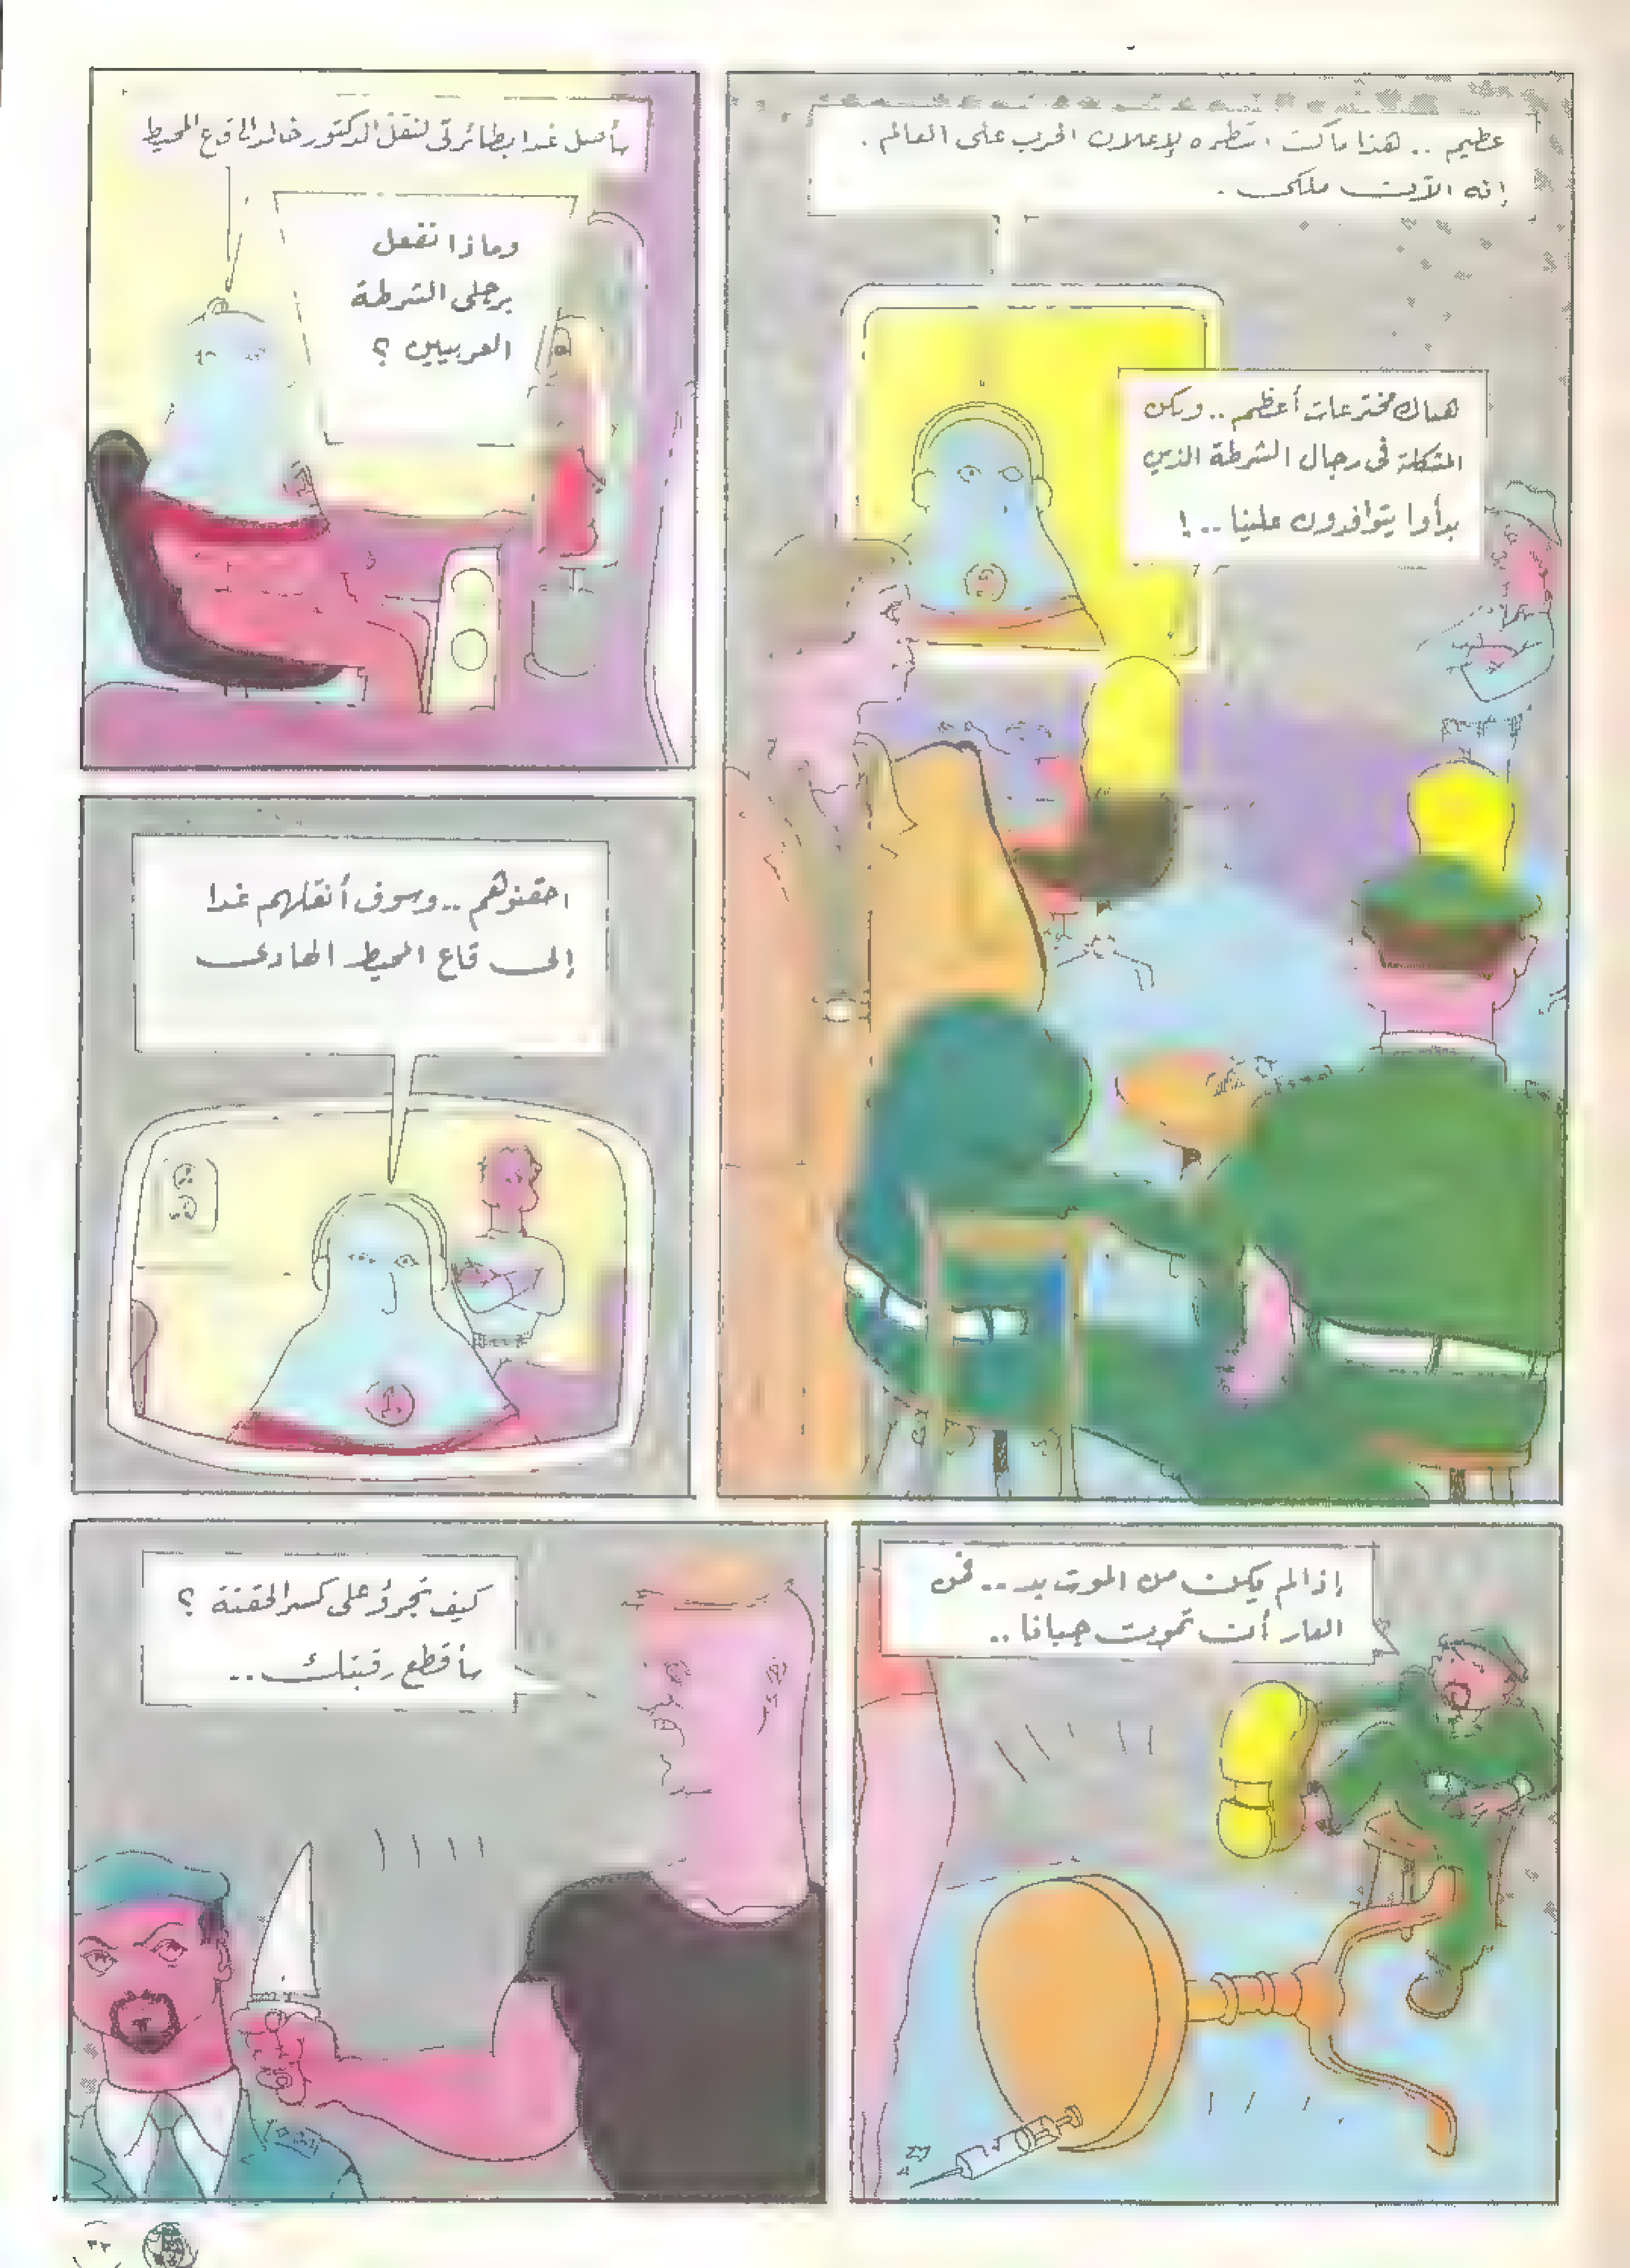 عظيم .. هذا ما كنت انتظره لإعلان الحرب على العالم .
إنه الآن ملكى .
هناك مخترعات أعظم .. ولكن
المشكلة فى رجال الشرطة الذين
بدأوا يتوافدون علينا .. !
سأصل غدا بطائرتى لننقل الدكتور خالد الى قاع المحيط
وماذا نفعل
برجلى الشرطة
العربيين ؟
احقنوهم .. وسوف أنقلهم غدا
إلى قاع المحيط الهادى
إذا لم يكن من الموت بد .. فمن
العار أن تموت جبانا ..
كيف تجرؤ على كسر الحقنة ؟
سأقطع رقبتك ..
٣٢